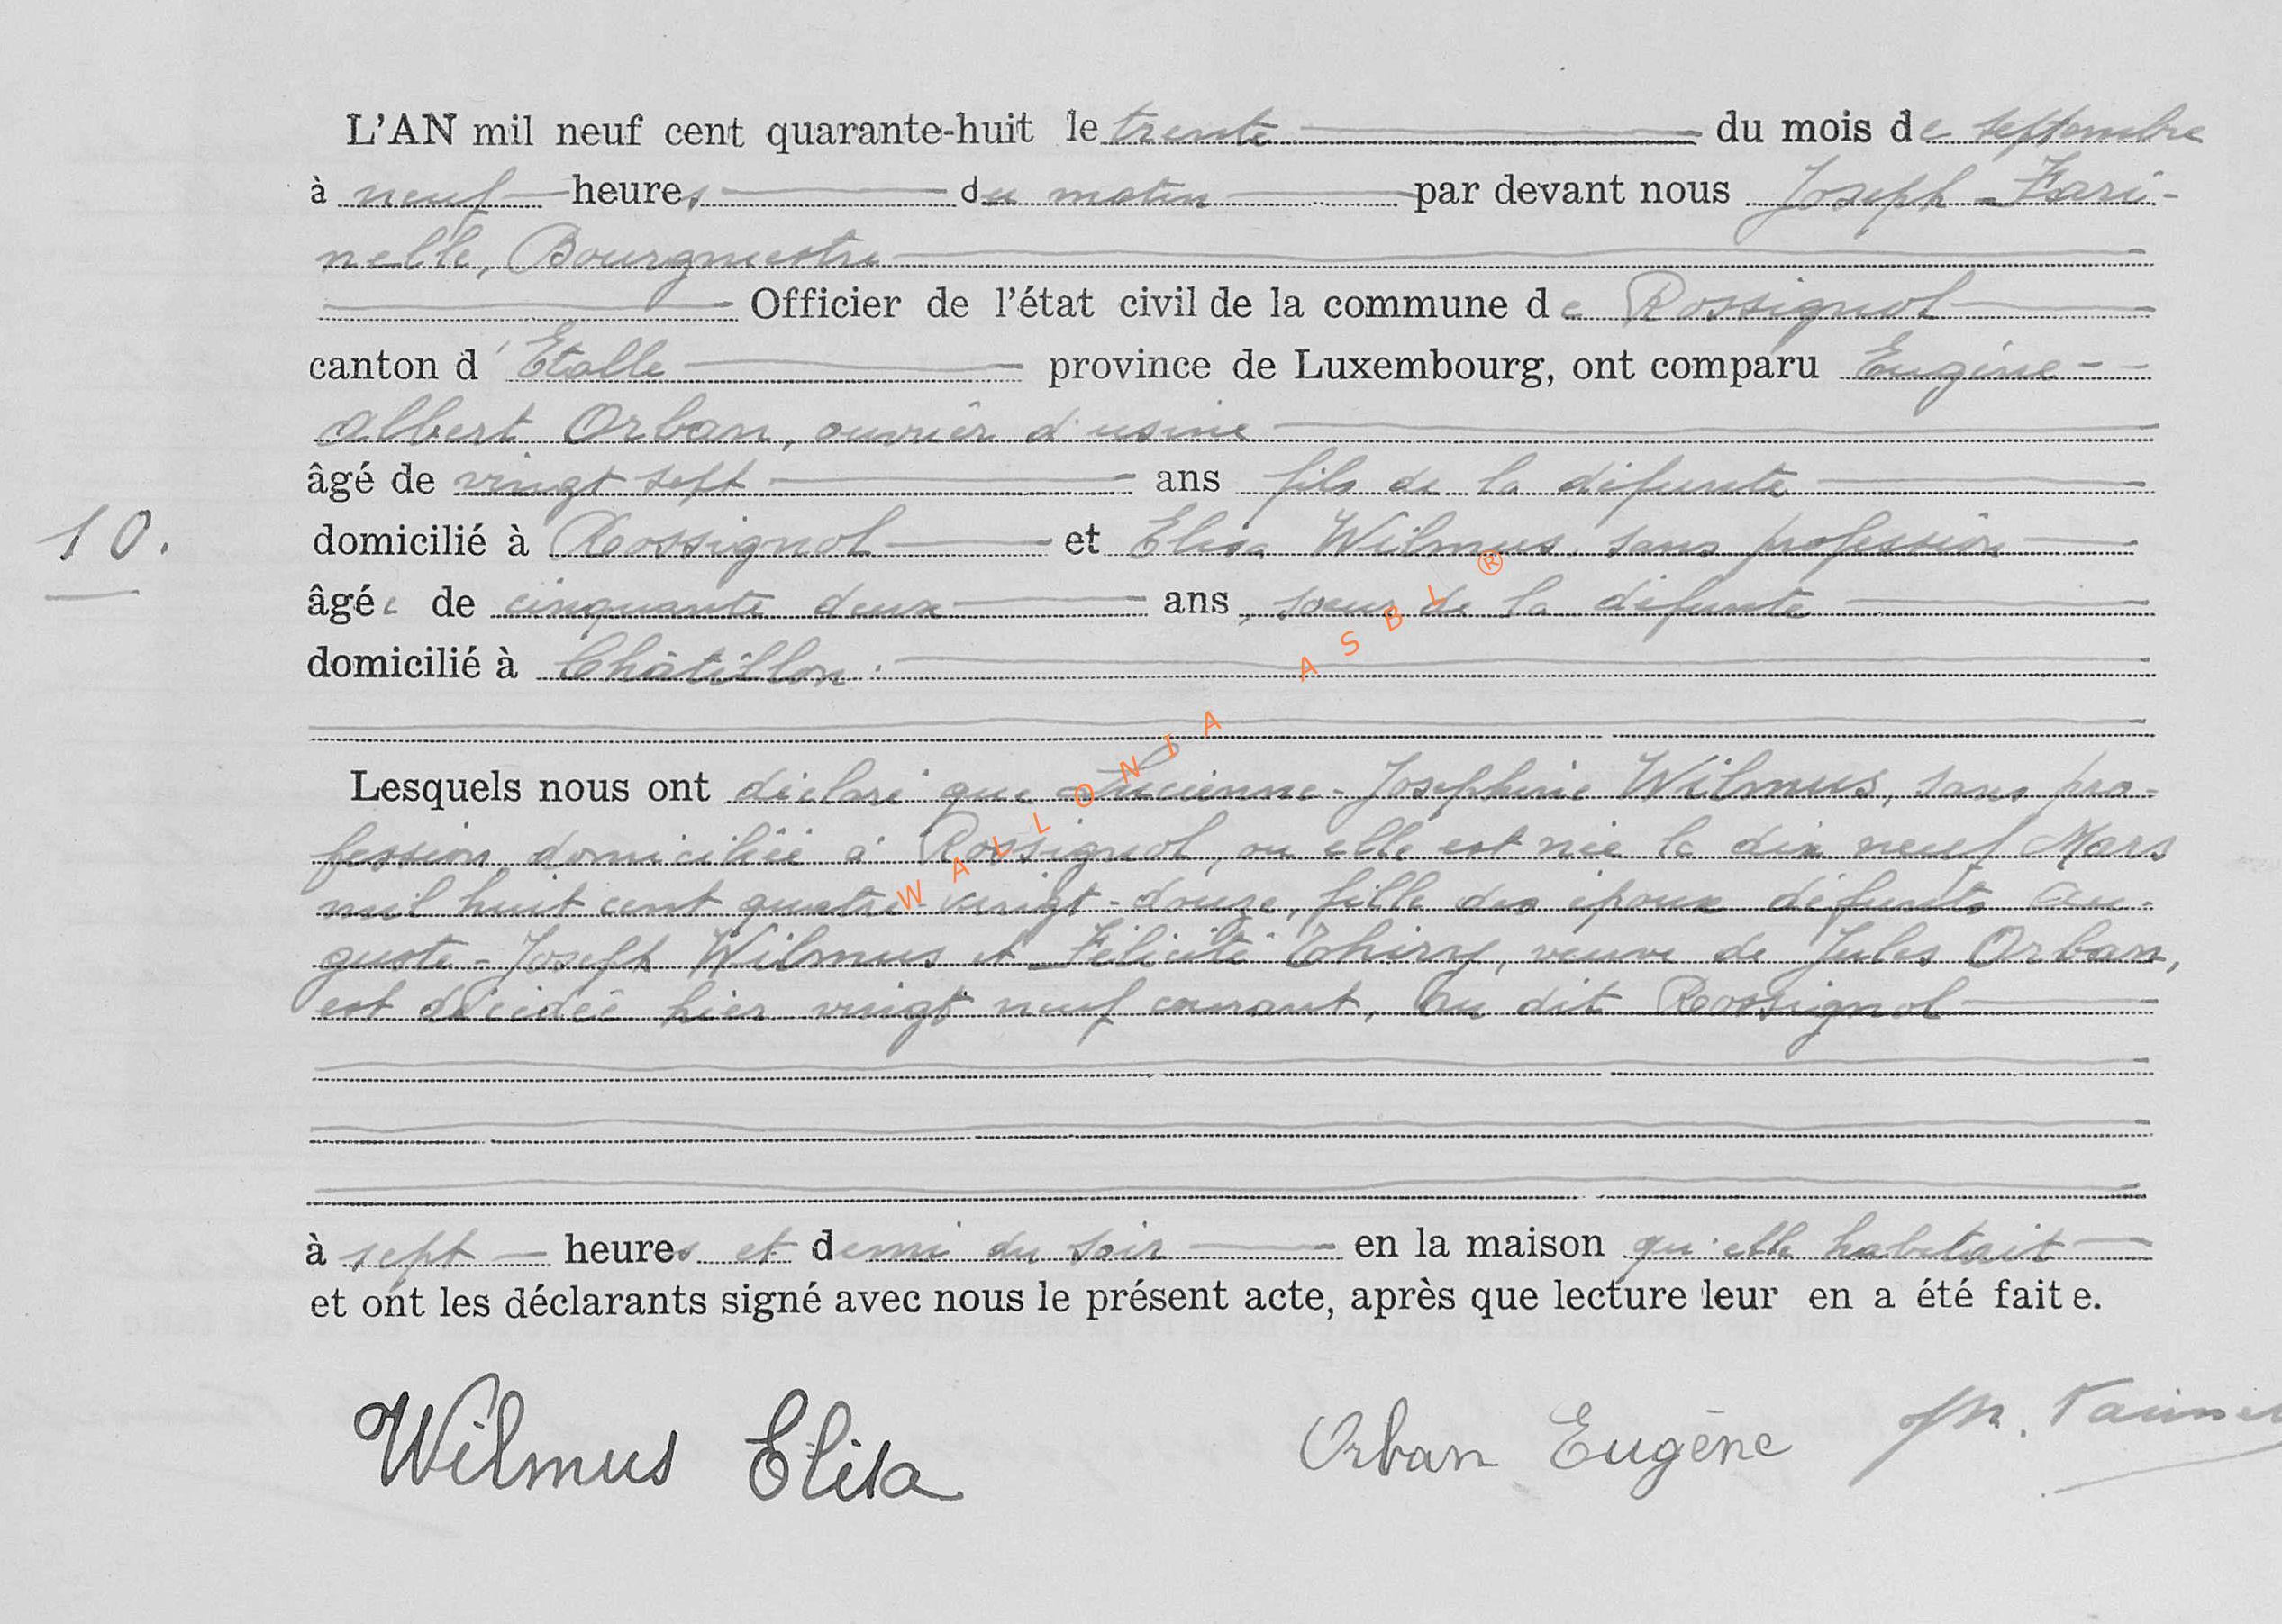 L'AN mil neuf cent quarante-huit le trente du mois de septembre
à neuf heures du matin par devant nous Joseph - Fari-
nelle, Bourgmestre
Officier de l'état civil de la commune de Rossignol
canton d'Etalle province de Luxembourg, ont comparu Eugène -
Albert Orban, ouvrier d'usine
âgé de vingt sept ans fils de la défunte
domicilié à Rossignol et Elisa Wilmus, sans profession
10.
âgée de cinquante deux ans, sœur de la défunte
domicilié à Châtillon.
Lesquels nous ont déclaré que Lucienne - Josephine Wilmus, sans pro-
fession, domiciliée à Rossignol, ou elle est née le dix neuf Mars
mil huit cent quatre-vingt-douze, fille des époux défunts Au-
guste - Joseph Wilmus et Félicité Thiry, veuve de Jules Orban,
est décédée hier vingt neuf courant, au dit Rossignol
à sept heures et demi du soir en la maison qu'elle habitait
et ont les déclarants signé avec nous le présent acte, après que lecture leur en a été faite.
Wilmus Elisa Orban Eugène
WALLONIA ASBL ®